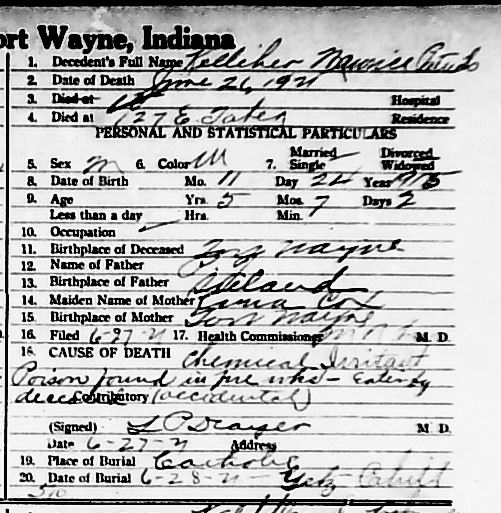 ort Wayne, Indiana
1. Decedent's Full Name Kelliher Maurice
2. Date of Death June 26, 1921
3. Died at Hospital
4. Died at 127 E. Residence
PERSONAL AND STATISTICAL PARTICULARS
5. Sex M 6. Color W 7. Married Single Divorced Widowed
8. Date of Birth Mo. 11 Day 24 Year 1915
9. Age Yrs. 5 Mos. 7 Days 2
Less than a day Hrs. Min.
10. Occupation
11. Birthplace of Deceased Fort Wayne
12. Name of Father
13. Birthplace of Father
14. Maiden Name of Mother Cox
15. Birthplace of Mother Fort Wayne
16. Filed 6-27-21 17. Health Commissioner M. D.
18. CAUSE OF DEATH Chemical Irritant
Poison found in fire wks - Eaten by
deceased Contributory (accidental)
(Signed) M. D.
Date 6-27-21 Address
19. Place of Burial Catholic
20. Date of Burial 6-28-21